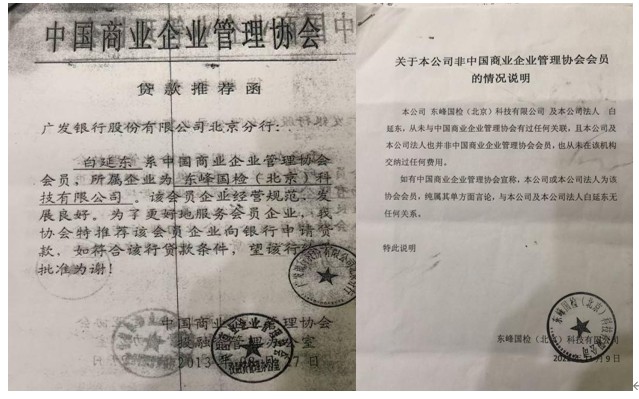 中国商业企业管理协会
贷款推荐函
广发银行股份有限公司北京分行：
白延东 系中国商业企业管理协会
会员，所属企业为 东峰国检（北京）科
技有限公司 。该会员企业经营规范，发
展良好。为了更好地服务会员企业，我
协会特推荐该会员企业向银行申请贷
款，如符合该行贷款条件，望该行
批准为谢！
中国商业企业管理协会
投融资管理办公室
2013
关于本公司非中国商业企业管理协会会员
的情况说明
本公司 东峰国检（北京）科技有限公司 及本公司法人 白
延东，从未与中国商业企业管理协会有过任何关联，且本公司及
本公司法人也并非中国商业企业管理协会会员，也从未在该机构
交纳过任何费用。
如有中国商业企业管理协会宣称，本公司或本公司法人为该
协会会员，纯属其单方面言论，与本公司及本公司法人白延东无
任何关系。
特此说明
东峰国检（北京）科技有限公司
月9日